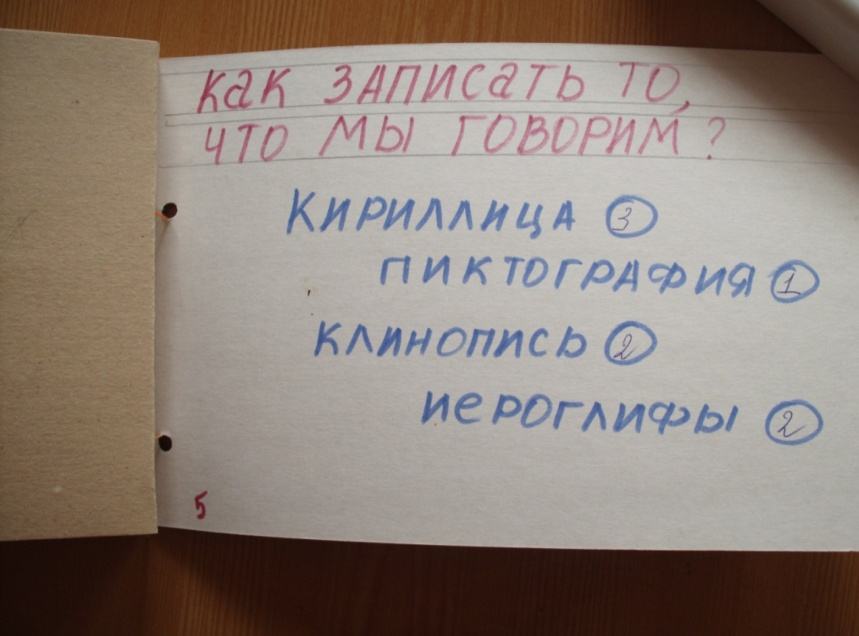 как записать то,
что мы говорим?
Кириллица 3
пиктография 1
клинопись 2
иероглифы 2
5